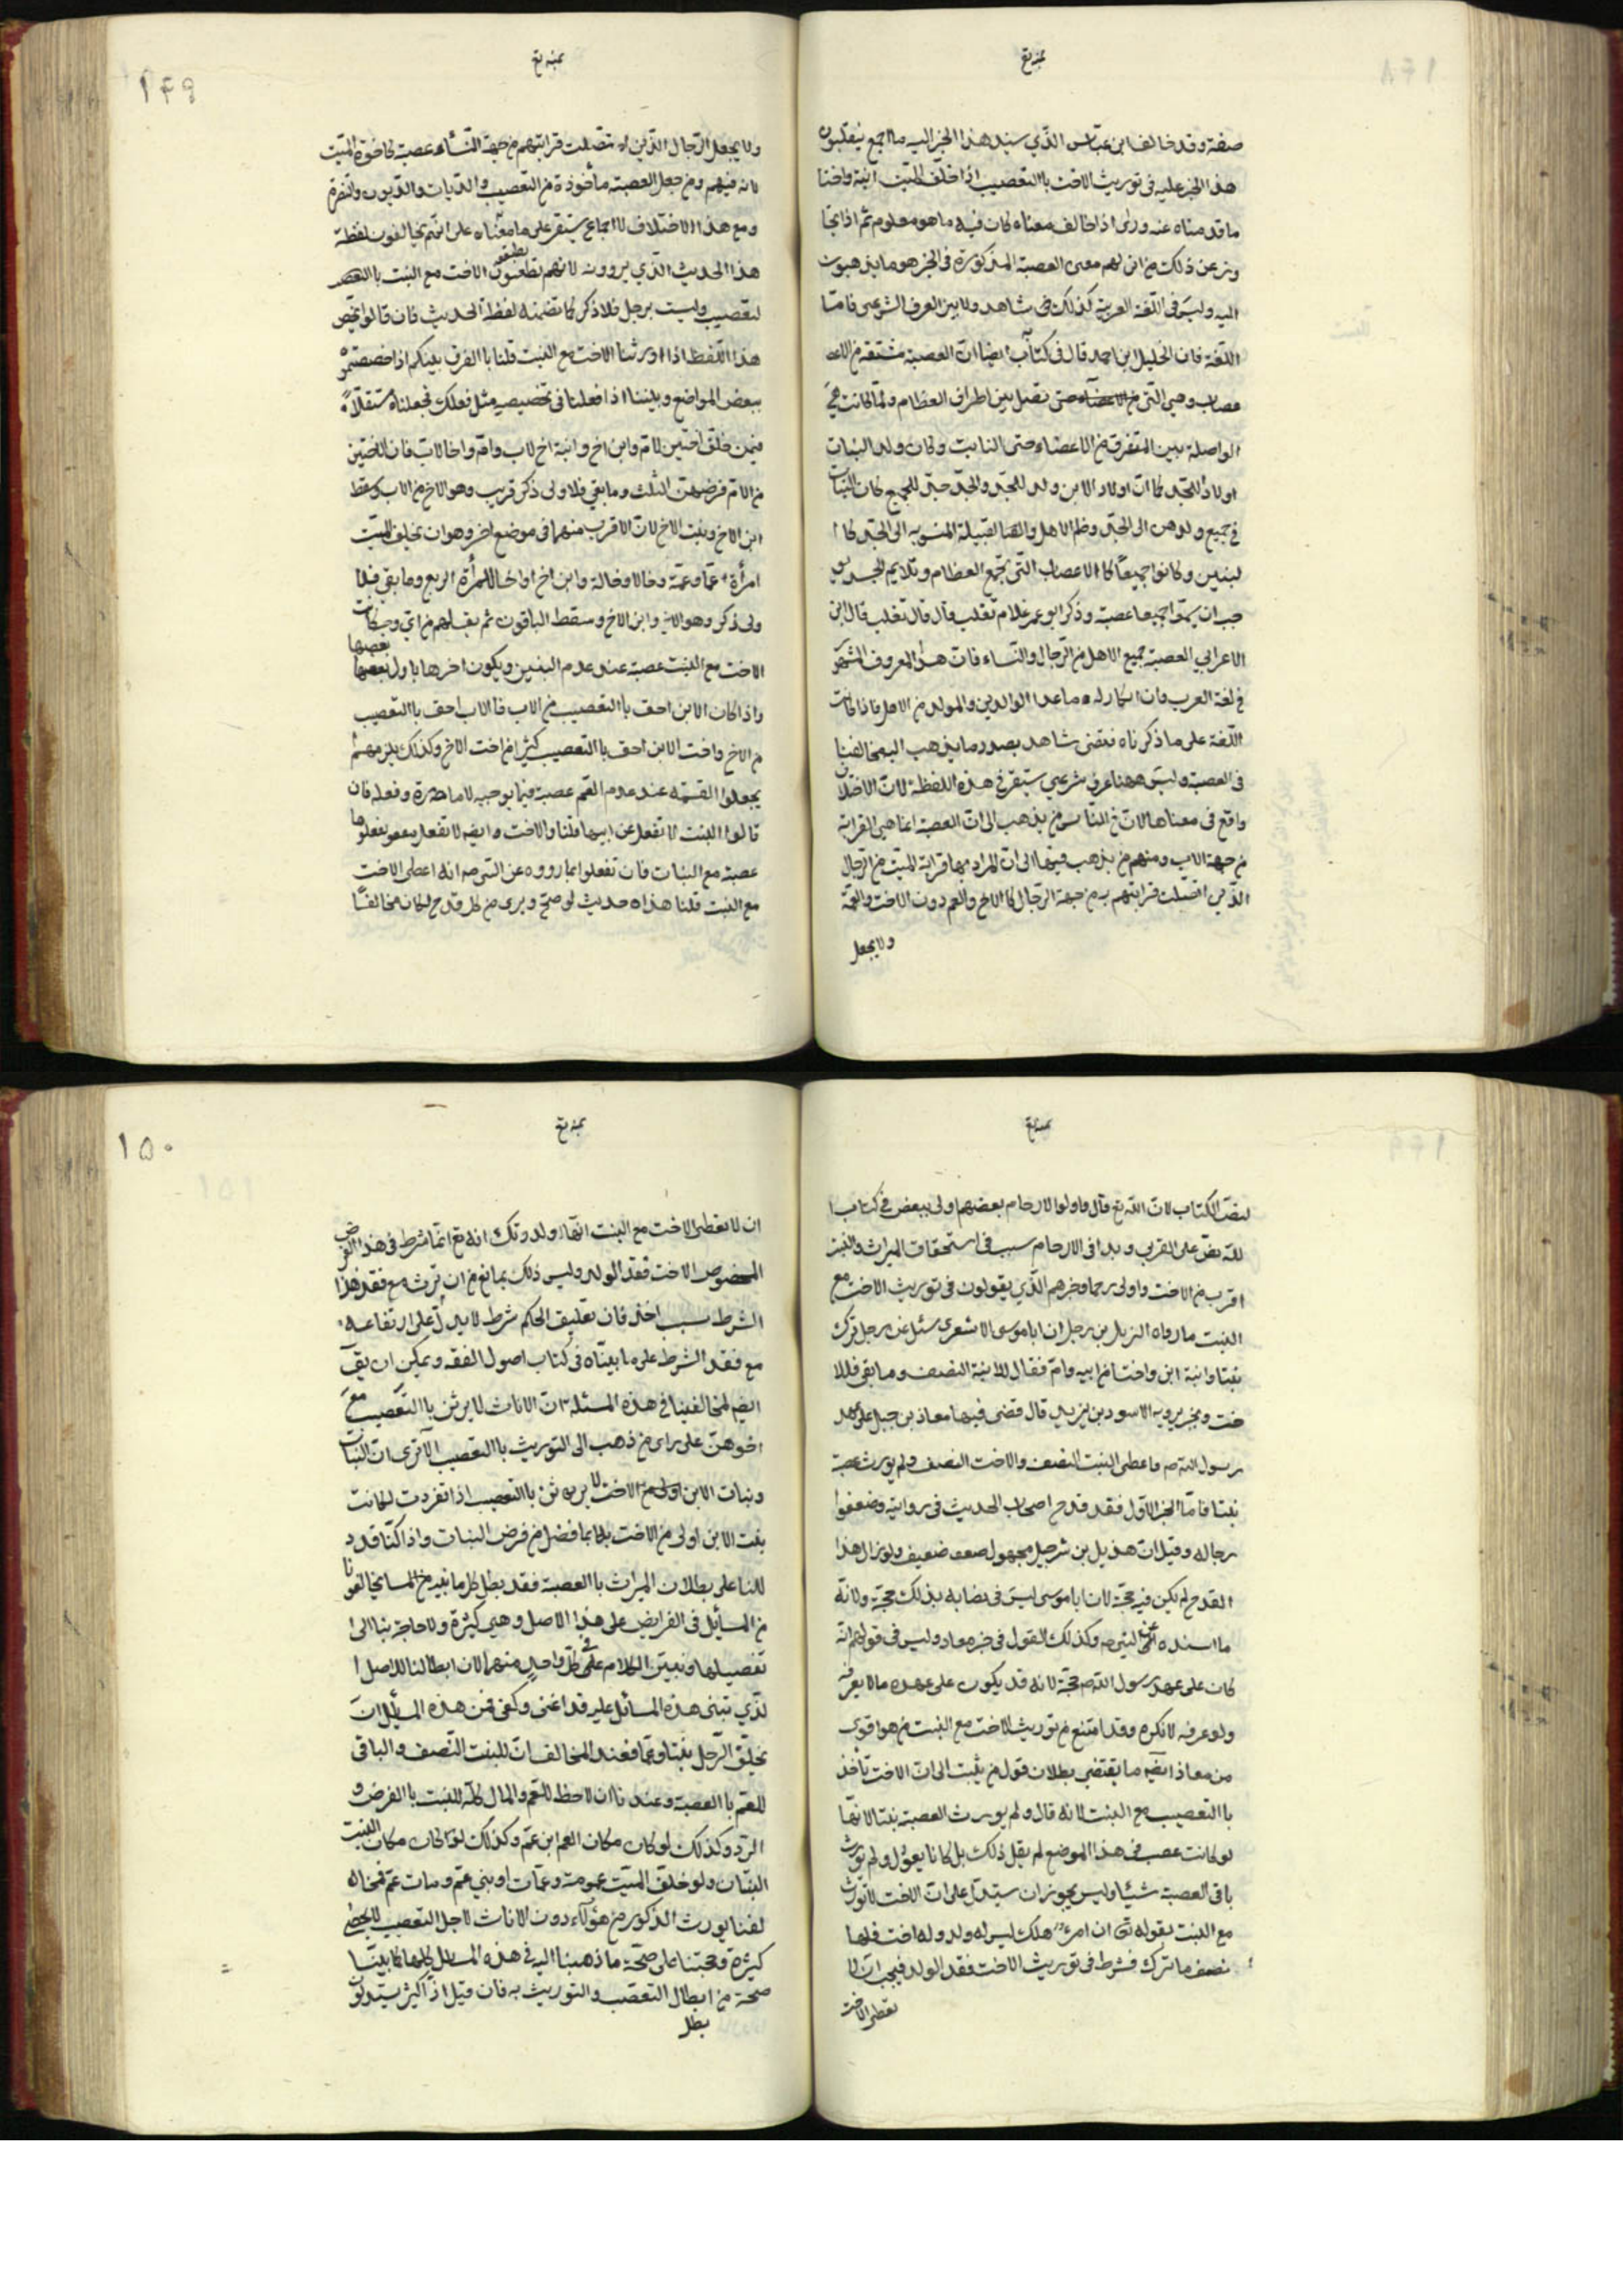 صفة وقد خالف ابن عباس الذي سند هذا الخبر اليه ما اجمع
هذا الخبر عليه في توريث الاخت بالتعصيب اذا خلف الميت ابنة واختا
ما قدمناه عنه وراى اذا خالف معناه كان فيه ما هو معلوم ثم اذا تجا
وزنا عن ذلك من اين لهم معنى العصبة المذكورة في الخبر هو ما يذهبون
اليه وليس في اللغة العربية لذلك شاهد ولا بين العرف الشرعي فاما
اللغة فان الخليل ابن احمد قال في كتاب ايضا ان العصبة مشتقة من الاعصاب
وهي التي تصل بين اطراف العظام ولما كانت هي
الواصلة بين المتفرق من الاعضاء حتى التأمت وكان ولد البنات
اولادا للجد كما ان اولاد الابن ولد للجد والجد جد للجميع كان البنات
في جميع ولدهن الى الجد وضم الاهل والقبيلة المنسوبة الى الجد كا
لبنين وكانوا جميعا كالاعصاب التي تجمع العظام وتلايم الجسد فو
جب ان يسموا جميعا عصبة وذكر ابو عمر غلام ثعلب قال قال ثعلب قال ابن
الاعرابي العصبة جميع الاهل من الرجال والنساء فان هذا المعروف المشهور
في لغة العرب وان الكلالة ما عدا الوالدين والمولد من الاهل فاذا كانت
اللغة على ما ذكرناه فنقضى شاهد بصدد ما يذهب اليه مخالفنا
في العصبة وليس ههنا عرف شرعي ستقر في هذه اللفظة لان الاختلاف
واقع في معناها لان في الناس من يذهب الى ان العصبة انما هي القرابة
من جهة الاب ومنهم من يذهب فيها الى ان المراد بها قرابة الميت من الرجال
الذين اتصلت قرابتهم به من جهة الرجال كالاخ والعم دون الاخت والعمة
ولا يجعل
۱۴۹
ولا يجعل الرجال الذين اتصلت قرابتهم من جهة النساء عصبة كاخوة الميت
لامه فيهم ومن جعل العصبة ماخوذة من التعصيب والديات والديون والنصرة
ومع هذا الاختلاف لا اجماع يستقر على ما معناه على انهم يخالفون لفظة
هذا الحديث الذي يروونه لانهم يعطون الاخت مع البنت بالتعصيب
وليست برجل فلا ذكر كما تضمنه لفظ الحديث فان قالوا نخص
هذا اللفظ اذا ورثنا الاخت مع البنت قلنا ما الفرق بينكم اذا خصصتموه
ببعض المواضع وبيننا اذا فعلنا في تخصيصه مثل فعلك فجعلناه مستقلا
فيمن خلف اختين لام وابن اخ وابنة اخ لاب وام واخا لاب فان للاختين
من الام فرضهن الثلث وما بقي فلاولى ذكر قريب وهو الاخ من الاب وسقط
ابن الاخ وبنت الاخ لان الاقرب منهما في موضع اخر وهو ان يخلف الميت
امرأة وعما وعمة وخالا وخالة وابن اخ او اخا فللمرأة الربع وما بقي فلا
ولى ذكر وهو الاخ وابن الاخ وسقط الباقون ثم يقال لهم من اي وجه كانت
الاخت مع البنت عصبة عند عدم البنين ويكون اخرها باول بعصبها
واذا كان الابن احق بالتعصيب من الاب فالاب احق بالتعصيب
من الاخ واخت الابن احق بالتعصيب كثيرا من اخت الاخ وكذلك يلزمهم ان
يجعلوا العمة عند عدم العم عصبة
قالوا البنت لا تعقل عن ابيها قلنا والاخت وايضا لا تعقل
عصبة مع البنات فان تعلقوا بما رووه عن النبي ص انه اعطى الاخت
مع البنت قلنا هذا حديث لو صح وبرى من كل قدح لكان مخالفا
لنص الكتاب لان الله تع قال واولوا الارحام بعضهم اولى ببعض في كتاب ا
لله نص على القربى وبدا في الارحام سبب في استحقاق الميراث والبنت
اقرب من الاخت واولى رحما وخبرهم الذي يقولون في توريث الاخت مع
البنت ما رواه الهزيل بن رجل ان ابا موسى الاشعري سئل عن رجل ترك
بنتا وابنة ابن واختا من ابيه وام فقال للابنة النصف وما بقي فللا
خت وبخبر يرويه الاسود بن يزيد قال قضى فيها معاذ بن جبل على عهد
رسول الله ص فاعطى البنت النصف والاخت النصف ولم يورث عصبة
بنتا فاما الخبر الاول فقد قدح اصحاب الحديث في روايته وضعفوا
رجاله وقيل ان هذيل بن شرجيل مجهول ضعيف ولو زال هذا
القدح لم يكن فيه حجة لان ابا موسى ليس في قضائه بذلك حجة ولانه
ما اسنده عن النبي ص وكذلك القول في خبر معاذ وليس في قولهم انه
كان على عهد رسول الله ص حجة لانه قد يكون على عهده ما لا يعرفه
ولو عرفه لانكره وقد امتنع من توريث الاخت مع البنت من هو اقوى
من معاذ ايضا ما يقتضي بطلان قول من يثبت الى ان الاخت تأخذ
بالتعصيب مع البنت لانه قال ولم يورث العصبة بنتا لانها
لو كانت عصبة في هذا الموضع لم يقل ذلك بل كان يقول ولم تورث
باقي العصبة شيئا وليس يجوز ان ستدل على ان الاخت لا تورث
مع البنت بقوله تع ان امرؤ هلك ليس له ولد وله اخت فلها
نصف ما ترك فشرط في توريث الاخت فقد الولد فيجب ان لا
تعطى الاخت
۱۵۰
ان لا تعطى الاخت مع البنت انها ولد وتلك انه تع انما شرط في هذا الفرض
المخصوص الاخت فقد الولد وليس ذلك بمانع من ان ترث مع فقد هذا
الشرط بسبب اخر فان تعليق الحكم شرط لا يدل على ارتفاعه
مع فقد الشرط على ما بيناه في كتاب اصول الفقه ويمكن ان يق
ايضا لمخالفينا في هذه المسئلة ان الاناث لا يرثن بالتعصيب مع
اخوهن على راى من ذهب الى التوريث بالتعصيب الا ترى ان البنات
وبنات الابن لا يرثن بالتعصيب اذا انفردت لكانت
بنت الابن اولى من الاخت بما فضل من فرض البنات واذا كنا قد د
للنا على بطلان الميراث بالعصبة فقد بطل كل ما بنيه من المسائل مخالفونا
من المسائل في الفرايض على هذا الاصل وهي كثيرة ولا حاجة بنا الى
تفصيلها وتبيين الكلام في كل واحد منها لان ابطالنا للاصل ا
لذي تبتنى هذه المسائل عليه قد اغنى وكفى فمن هذه المسائل ان
يخلف الرجل بنتا وعما فعند المخالف ان للبنت النصف والباقي
للعم بالعصبة وعندنا ان لاحظ للعم والمال كله للبنت بالفرض و
الرد وكذلك لو كان مكان العم ابن عم وكذلك لو كان مكان البنت
ابنتان ولو خلف الميت عمومة وعمات او بني عم وبنات عم فمخا
لفنا يورث الذكور من هؤلاء دون الاناث لاجل التعصيب
كثيرة وحجتنا على صحة ما ذهبنا اليه في هذه المسائل كلها ما بينا
صحته من ابطال التعصب والتوريث به فان قيل اذ اكثر يستدلون
بطل